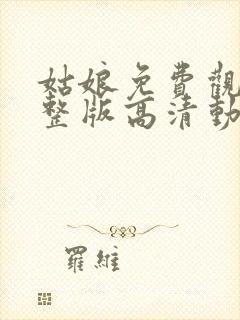 姑娘免費觀
整版高清動
羅維